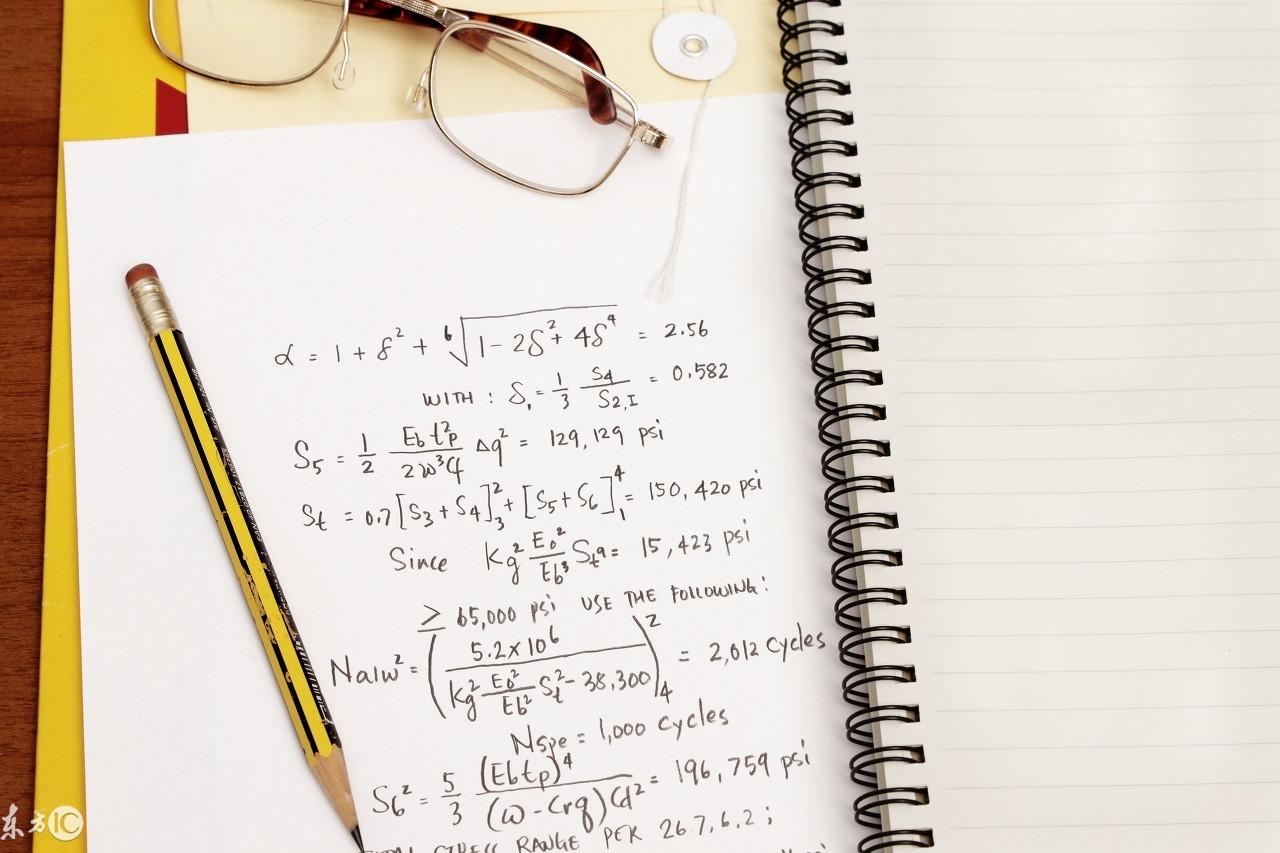 α = 1 + δ² + ⁶√(1 - 2δ² + 4δ⁴) = 2.56
WITH : δ₁ = 1/3 S4/S2,I = 0.582
S₅ = 1/2 Eb t²p / 2w³Cf Δq² = 129,129 psi
St = 0.7[S3 + S4]²₃ + [S5 + S6]⁴₁ = 150,420 psi
Since Kg² Eo²/Eb³ St⁹ = 15,423 psi
≥ 65,000 psi USE THE FOLLOWING:
Nalw² = (5.2 x 10⁶ / Kg² Eo²/Eb² St² - 38,300)²₄ = 2,012 cycles
Nspe = 1,000 cycles
S6² = 5/3 (Ebtp)⁴ / (w - Crq)Cd² = 196,759 psi
STRESS RANGE PER 26.7.6.2 ;
东方IC